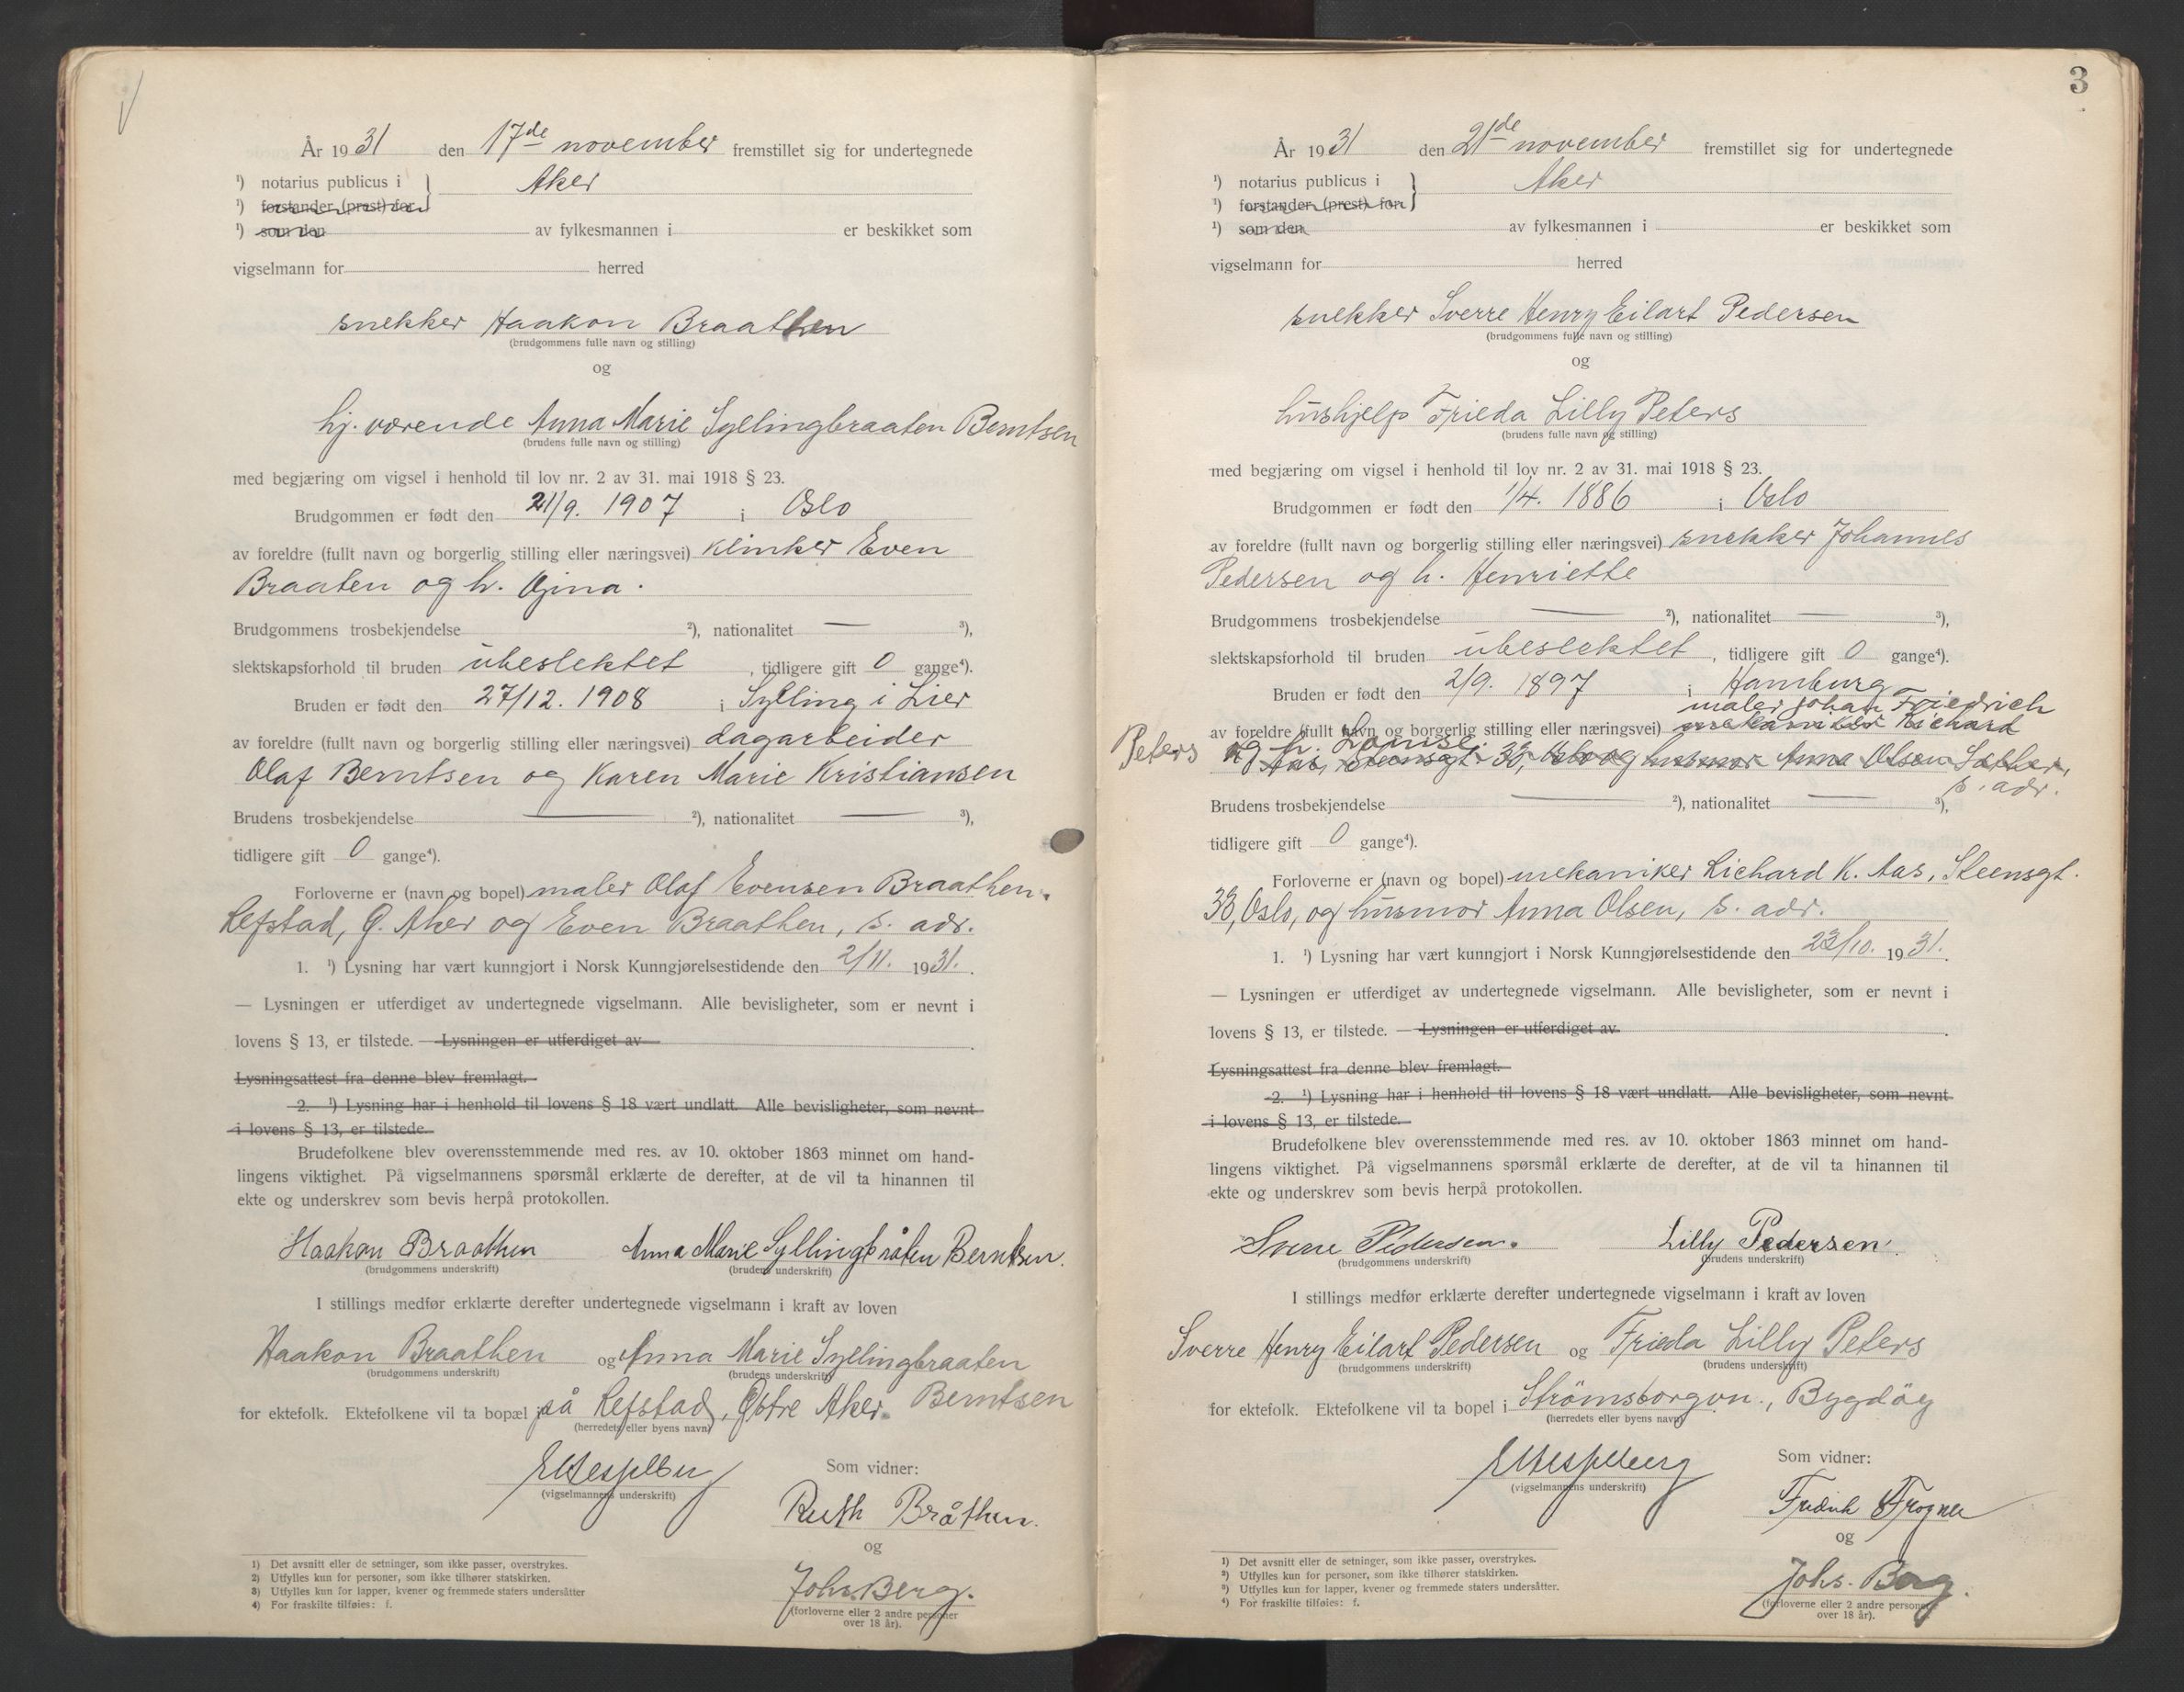 År 1931 den 17de november fremstillet sig for undertegnede
¹) notarius publicus i } Aker
¹) forstander (prest) for
¹) som den av fylkesmannen i er beskikket som
vigselmann for herred
snekker Haakon Braathen
(brudgommens fulle navn og stilling)
og
hj. værende Anna Marie Syllingbraaten Berntsen
(brudens fulle navn og stilling)
med begjæring om vigsel i henhold til lov nr. 2 av 31. mai 1918 § 23.
Brudgommen er født den 21/9. 1907 i Oslo
av foreldre (fullt navn og borgerlig stilling eller næringsvei) klinker Even
Braaten og h. Gina.
Brudgommens trosbekjendelse ²), nationalitet — ³),
slektskapsforhold til bruden ubeslektet, tidligere gift 0 gange⁴).
Bruden er født den 27/12. 1908 i Sylling i Lier
av foreldre (fullt navn og borgerlig stilling eller næringsvei) dagarbeider
Olaf Berntsen og Karen Marie Kristiansen
Brudens trosbekjendelse — ²), nationalitet — ³),
tidligere gift 0 gange⁴).
Forloverne er (navn og bopel) maler Olaf Evensen Braathen,
Refstad, Ø. Aker og Even Braathen, s. adr.
1. ¹) Lysning har vært kunngjort i Norsk Kunngjørelsestidende den 2/11. 1931.
— Lysningen er utferdiget av undertegnede vigselmann. Alle bevisligheter, som er nevnt i
lovens § 13, er tilstede. — Lysningen er utferdiget av
Lysningsattest fra denne blev fremlagt.
2. ¹) Lysning har i henhold til lovens § 18 vært undlatt. Alle bevisligheter, som nevnt
i lovens § 13, er tilstede.
Brudefolkene blev overensstemmende med res. av 10. oktober 1863 minnet om hand-
lingens viktighet. På vigselmannens spørsmål erklærte de derefter, at de vil ta hinannen til
ekte og underskrev som bevis herpå protokollen.
Haakon Braathen Anna Marie Syllingbråten Berntsen.
(brudgommens underskrift) (brudens underskrift)
I stillings medfør erklærte derefter undertegnede vigselmann i kraft av loven
Haakon Braathen og Anna Marie Syllingbraaten
(brudgommens underskrift) (brudens underskrift)
Berntsen
for ektefolk. Ektefolkene vil ta bopæl på Refstad, Østre Aker.
(herredets eller byens navn)
Som vidner:
(vigselmannens underskrift)
Ruth Bråthen.
og
Johs. Berg.
(forloverne eller 2 andre personer
over 18 år).
1) Det avsnitt eller de setninger, som ikke passer, overstrykes.
2) Utfylles kun for personer, som ikke tilhører statskirken.
3) Utfylles kun for lapper, kvener og fremmede staters undersåtter
4) For fraskilte tilføies: f.
3
År 1931 den 21de november fremstillet sig for undertegnede
¹) notarius publicus i } Aker
¹) forstander (prest) for
¹) som den av fylkesmannen i er beskikket som
vigselmann for herred
snekker Sverre Henry Eilart Pedersen
(brudgommens fulle navn og stilling)
og
hushjelp Frieda Lilly Peters
(brudens fulle navn og stilling)
med begjæring om vigsel i henhold til lov nr. 2 av 31. mai 1918 § 23.
Brudgommen er født den 1/4. 1886 i Oslo
av foreldre (fullt navn og borgerlig stilling eller næringsvei) snekker Johannes
Pedersen og h. Henriette
Brudgommens trosbekjendelse — ²), nationalitet — ³),
slektskapsforhold til bruden ubeslektet, tidligere gift 0 gange⁴).
Bruden er født den 2/9. 1897 i Hamburg
maler Johan Friedrich
av foreldre (fullt navn og borgerlig stilling eller næringsvei) mekaniker Richard
Peters og h. Louise.
Aas, Steensgt. 33, Oslo og husmor Anna Olsen
s. adr.
Brudens trosbekjendelse — ²), nationalitet — ³),
tidligere gift 0 gange⁴).
Forloverne er (navn og bopel) mekaniker Richard K. Aas, Steensgt.
33, Oslo, og husmor Anna Olsen, s. adr.
1. ¹) Lysning har vært kunngjort i Norsk Kunngjørelsestidende den 23/10. 1931.
— Lysningen er utferdiget av undertegnede vigselmann. Alle bevisligheter, som er nevnt i
lovens § 13, er tilstede. — Lysningen er utferdiget av
Lysningsattest fra denne blev fremlagt.
2. ¹) Lysning har i henhold til lovens § 18 vært undlatt. Alle bevisligheter, som nevnt
i lovens § 13, er tilstede.
Brudefolkene blev overensstemmende med res. av 10. oktober 1863 minnet om hand-
lingens viktighet. På vigselmannens spørsmål erklærte de derefter, at de vil ta hinannen til
ekte og underskrev som bevis herpå protokollen.
Sverre Pedersen. Lilly Pedersen.
(brudgommens underskrift) (brudens underskrift)
I stillings medfør erklærte derefter undertegnede vigselmann i kraft av loven
Sverre Henry Eilart Pedersen og Frieda Lilly Peters
(brudgommens underskrift) (brudens underskrift)
for ektefolk. Ektefolkene vil ta bopel i Strömsborgvn., Bygdöy
(herredets eller byens navn)
Som vidner:
(vigselmannens underskrift)
Fredrik Frogner
og
Johs. Berg.
(forloverne eller 2 andre personer
over 18 år).
¹) Det avsnitt eller de setninger, som ikke passer, overstrykes.
²) Utfylles kun for personer, som ikke tilhører statskirken.
³) Utfylles kun for lapper, kvener og fremmede staters undersåtter.
⁴) For fraskilte tilføies: f.